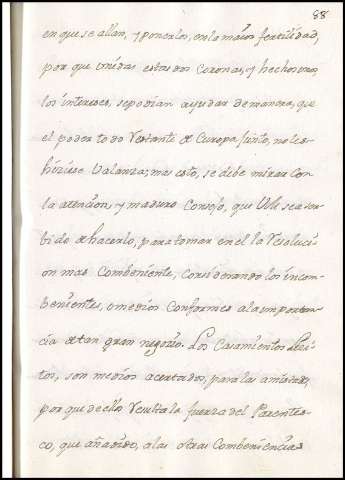 88
en que se allan, y ponerlos, en la maior fertilidad,
por que vnidas estas dos Coronas, y hechos vnos
los interezes, se podian ayudar de manera, que
el poder todo Restante de Europa junto, no les
hiziese Valanza; mas esto, se debe mirar con
la atencion, y maduro Consejo, que VM sea ser-
bido de hacerlo, para tomar en el la Resoluci-
on mas Combeniente, Considerando los incom-
benientes, o medios Conformes a la importan-
cia de tan gran negocio. Los Casamientos
tos, son medios acertados, para las amistades,
por que de ellos Resulta la fuerza del Parentes-
co, que añadido, a las otras Combeniencias